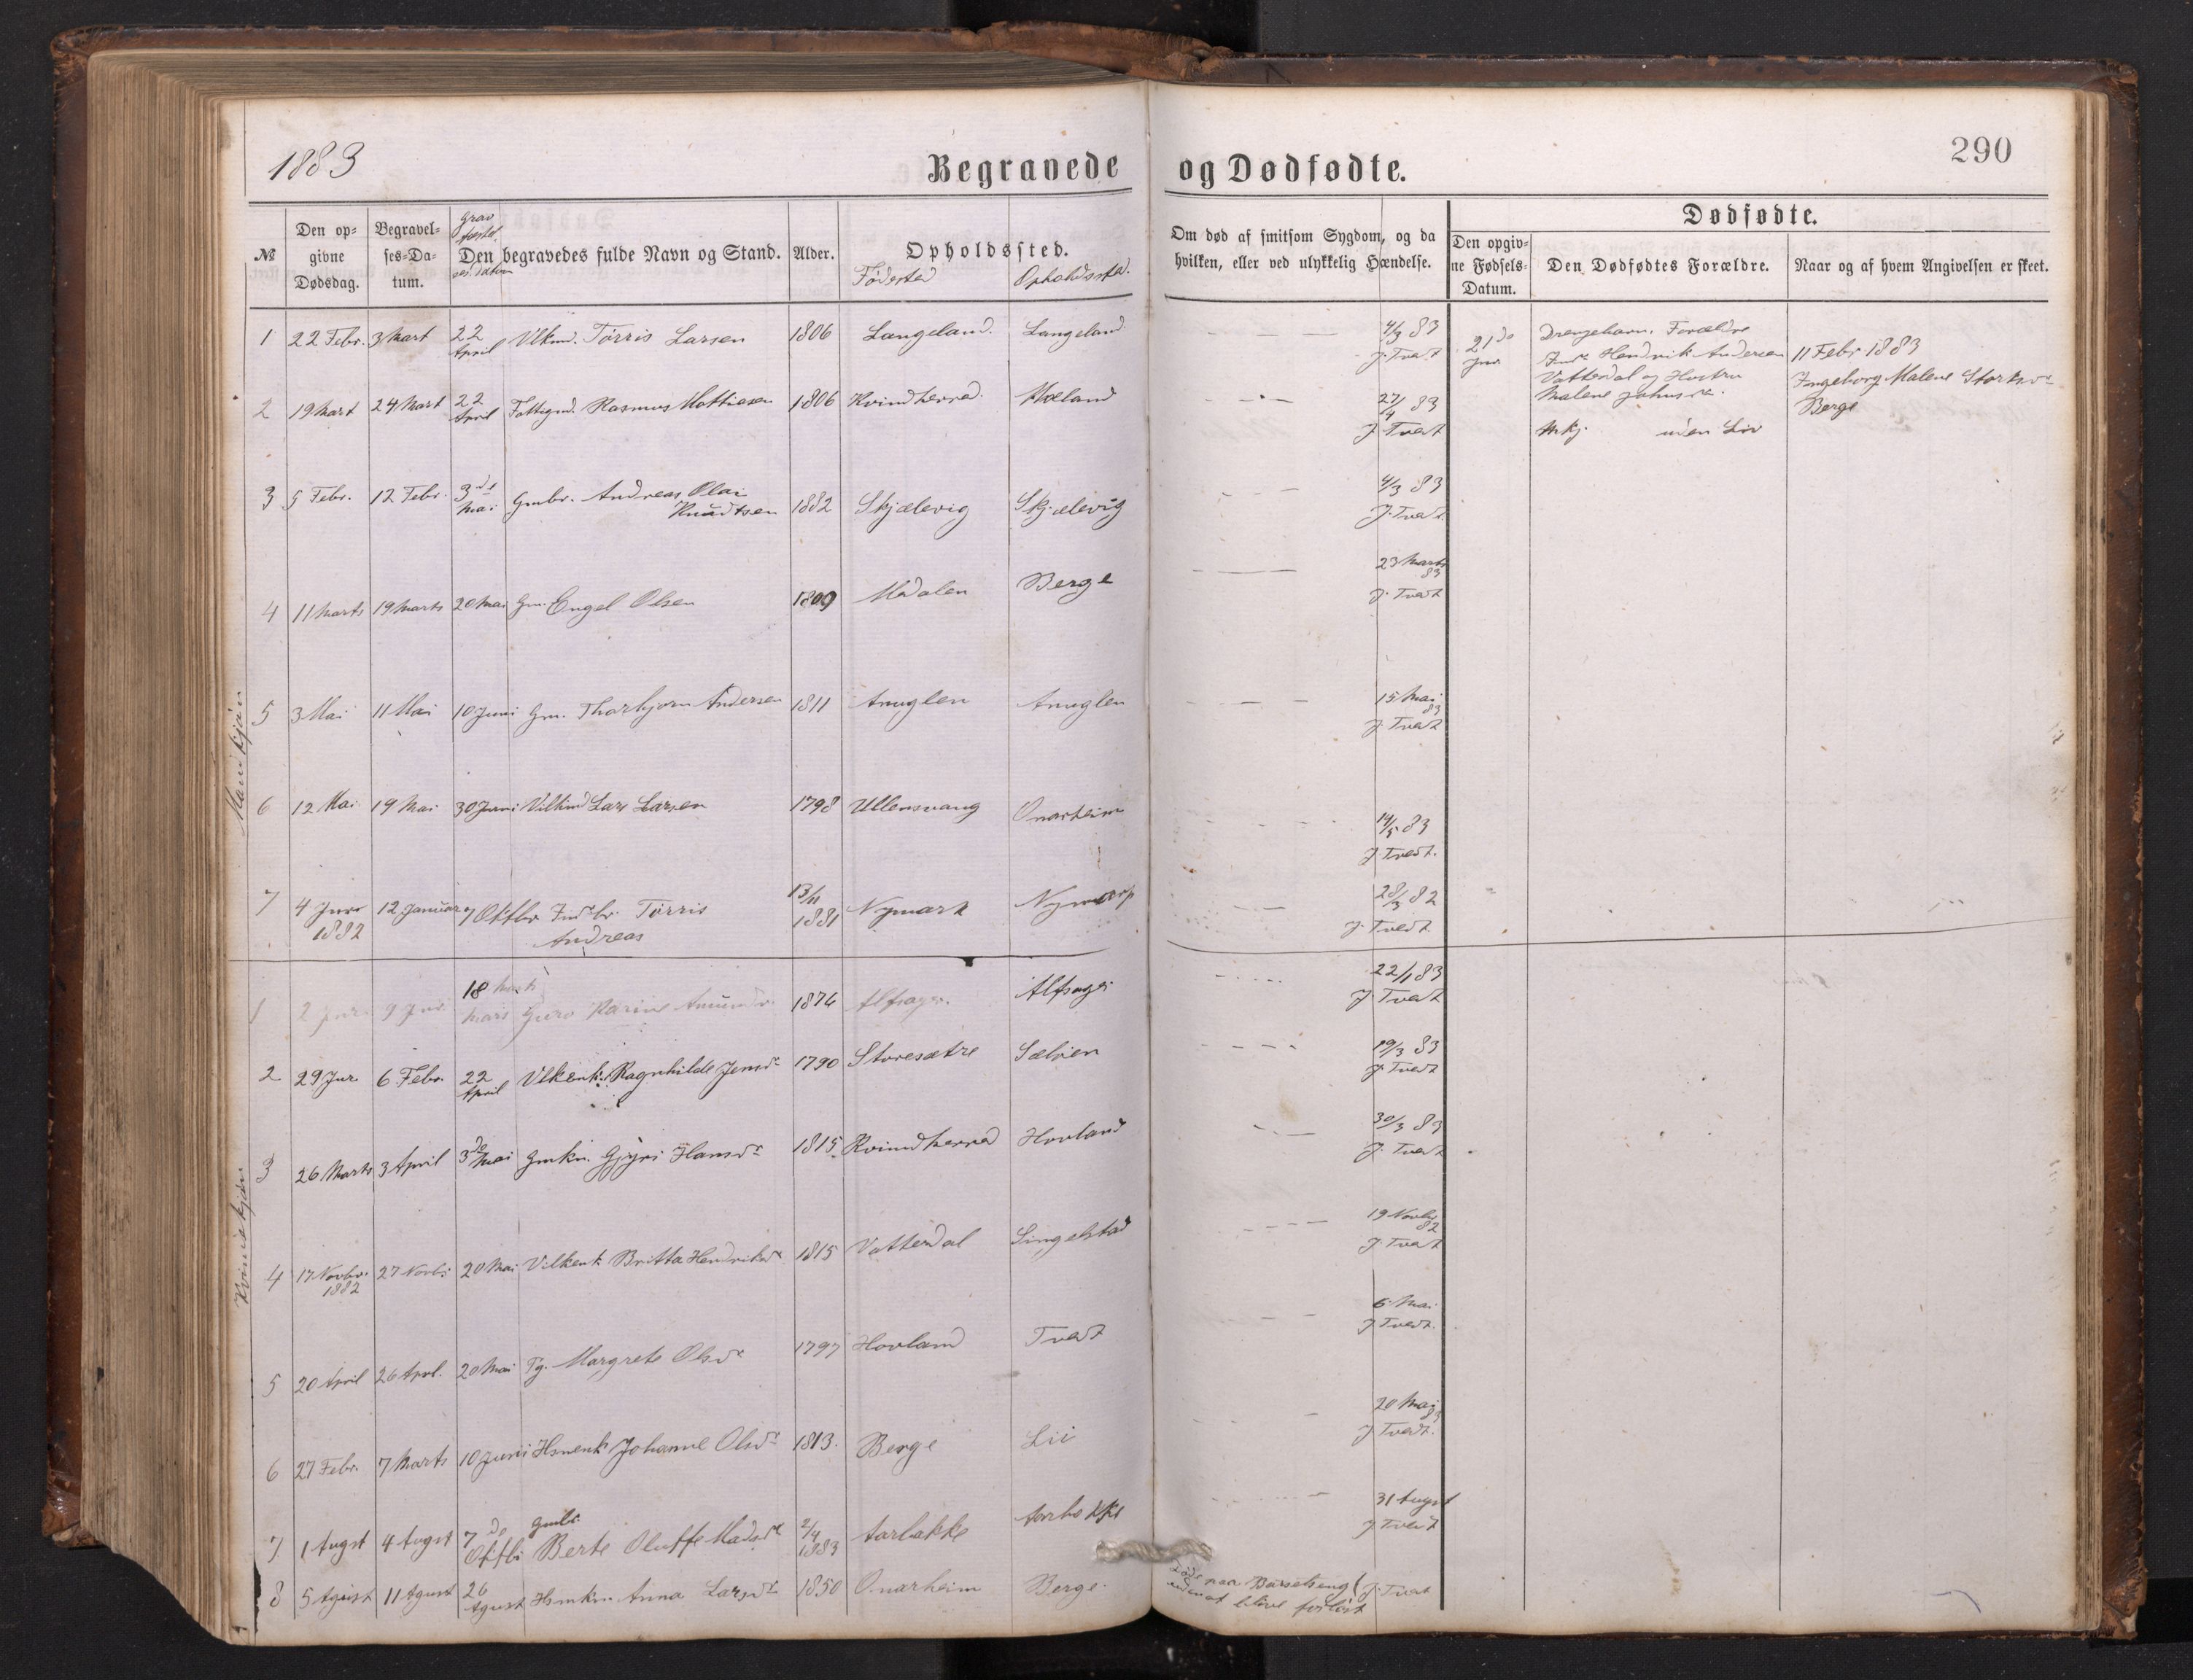 1883
Begravede og Dødfødte.
290
№
Den opgivne Dødsdag.
Begravelses-Datum.
Den begravedes fulde Navn og Stand.
Alder.
Opholdssted.
Fødested
Opholdssted.
Om død af smitsom Sygdom, og da hvilken, eller ved ulykkelig Hændelse.
Dødfødte.
Den opgivne Fødsels-Datum.
Den Dødfødtes Forældre.
Naar og af hvem Angivelsen er skeet.
Mandkjøn
1 22 Febr. 3 Mart 22 April Vlkmd. Tørris Larsen 1806 Langeland. Langeland. 4/3 83 J. Tvedt
2 19 Mart 24 Mart 22 April Fattigmd. Rasmus Mattiasen 1806 Kvindherred. Hæland 27/4 83 J. Tvedt
3 5 Febr. 12 Febr. 3de Mai Gmbr. Andreas Olai Knudtsen 1882 Skjælevig Skjælevig 4/3 83 J. Tvedt
4 11 Marts 19 Marts 20 Mai Gm. Engel Olsen 1809 Mdalen Berge 23 Marts 83 J. Tvedt
5 3 Mai 11 Mai 10 Juni Gm. Thorbjørn Andersen 1811 Anuglen Anuglen 15 Mai 83 J. Tvedt
6 12 Mai 19 Mai 30 Juni Vilkmd Lars Larsen 1798 Ullensvang Onarheim 14/5 83 J. Tvedt.
7 4 Jnr 1882 12 Januar 7 Oktbr Indr br. Tørris Andreas 13/11 1881 Nymark Nymark 28/3 82 J. Tvedt
21de Jnr
Drengebarn. Forældre
Indr Hendrik Andersen
Vatterdal og Hustru
Malene Johnsdr.
Mkj. uden Liv
11 Febr 1883
Ingeborg Malene Storksdr
Berge
Kvindekjøn
1 2 Jnr. 9 Jnr. 18 Mars Guro Karine Amundsdr. 1874 Alsager. Alsager 22/1 83 J. Tvedt
2 29 Jnr. 6 Febr. 22 April Vlkenk. Ragnhilde Jensdr 1790 Storesætre Sælvien 19/3 83 J. Tvedt
3 26 Marts 3 April 3de Mai Gmkn. Gjyri Hansdr 1815 Kvindherred Hovland 30/3 83 J. Tvedt
4 17 Novbr. 1882 27 Novbr 20 Mai Vilkenk. Britta Hendriksdr 1815 Vatterdal Singelstad 19 Novbr 82 J. Tvedt
5 20 April 26 Aprl. 20 Mai Tg. Margrete Olsdr 1797 Hovland Tvedt 6 Mai J. Tvedt.
6 27 Febr. 7 Marts 10 Juni Hsmenk Johanne Olsdr 1813. Berge Lii 20 Mai 83 J. Tvedt.
7 1 Augst 4 Augst 7de Oktbr Gmbr. Berte Oluffe Madsdr 2/4 1883 Aarbakke Aarbakke 31 Augst J. Tvedt
8 5 Agust 11 Agust 26 Agust Hsmkn. Anna Larsdr 1850 Onarheim Berge. Døde paa Barselseng uden at blive forløst J. Tvedt